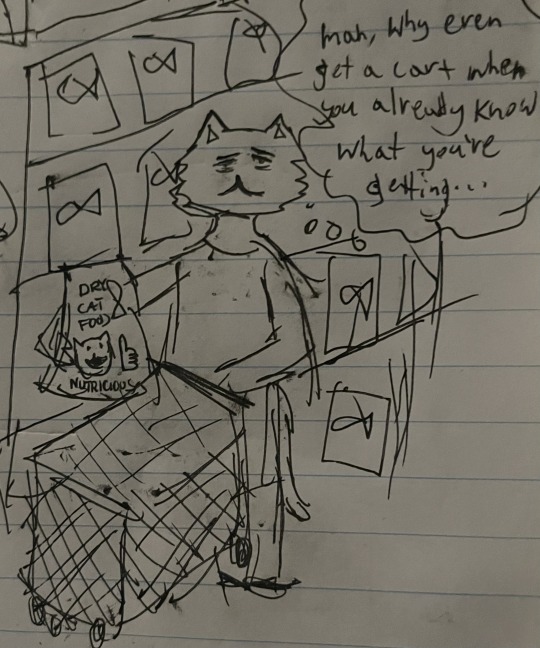 mah, Why even
get a cart when
you already know
what you're
getting...
DRY
CAT
FOOD
NUTRICIOUS